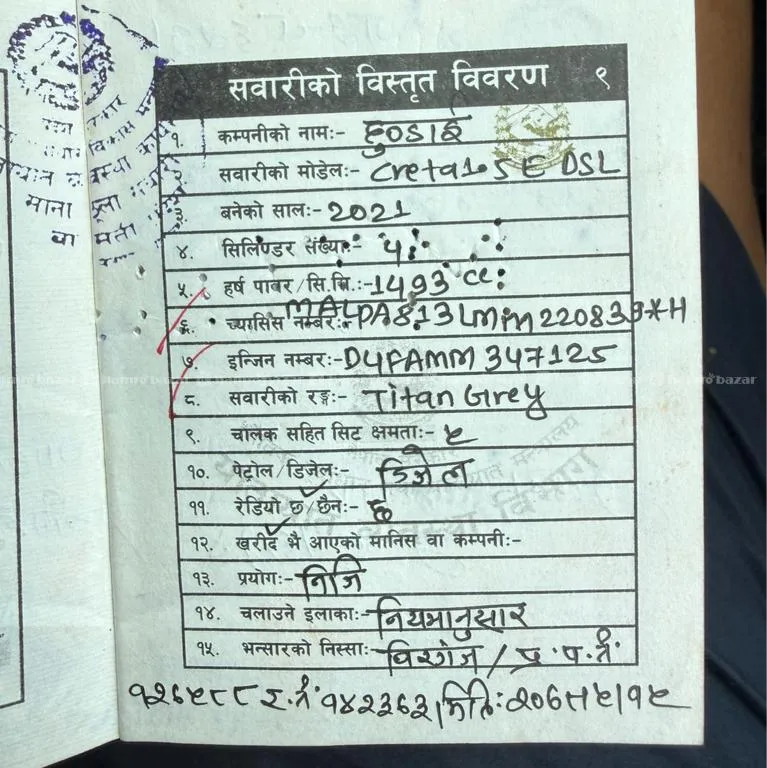 सवारीको विस्तृत विवरण ९
१. कम्पनीको नाम:- हुण्डाई
२ सवारीको मोडेल:- Creta 1.5 E DSL
३ बनेको साल:- 2021
४. सिलिण्डर संख्या:- ४
५. हर्ष पावर/सि.सि.:- 1493 cc
६. च्यासिस नम्बर:- MALPA813LMM220839*H
७. इन्जिन नम्बर:- D4FAMM347125
८. सवारीको रङ्ग:- Titan Grey
९. चालक सहित सिट क्षमता:- ५
१०. पेट्रोल/डिजेल:- डिजेल
११. रेडियो छ/छैन:- छ
१२. खरीद भै आएको मानिस वा कम्पनी:-
१३. प्रयोग:- निजि
१४. चलाउने इलाका:- नियमानुसार
१५. भन्सारको निस्सा:- विरगंज / प्र.प.नं.
१२६५८८ र.नं. १४२३६३ मिति: २०७८।५।१५
hamro bazar